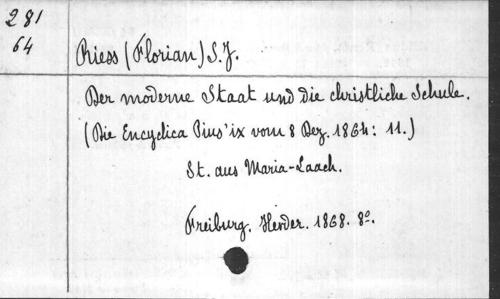 281
64
Riess (Florian) S.J.
Der moderne Staat und die christliche Schule.
(Die Encyclica Pius' ix vom 8 Dez. 1864: 11.)
St. aus Maria-Laach.
Freiburg. Herder. 1868. 8o.